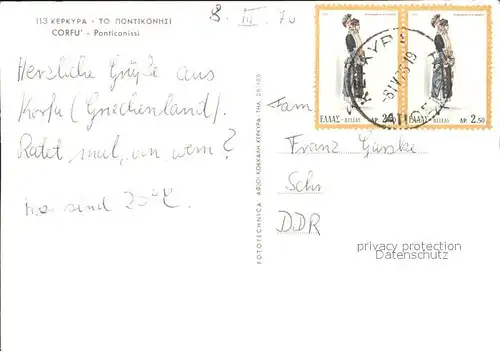 113 ΚΕΡΚΥΡΑ - ΤΟ ΠΟΝΤΙΚΟΝΗΣΙ
CORFU' - Ponticonissi
8. III. 76
Herzliche Grüße aus
Korfu (Griechenland).
Ratet mal, von wem?
sind 25°C.
FOTOTECHNICA ΑΦΟΙ ΚΟΚΚΑΛΗ ΚΕΡΚΥΡΑ
ΕΛΛΑΣ-HELLAS ΔΡ. 2.50
ΕΛΛΑΣ-HELLAS ΔΡ. 2.50
ΚΕΡΚΥΡΑ
Fam
Franz
Schr
DDR
privacy protection
©akpool.de